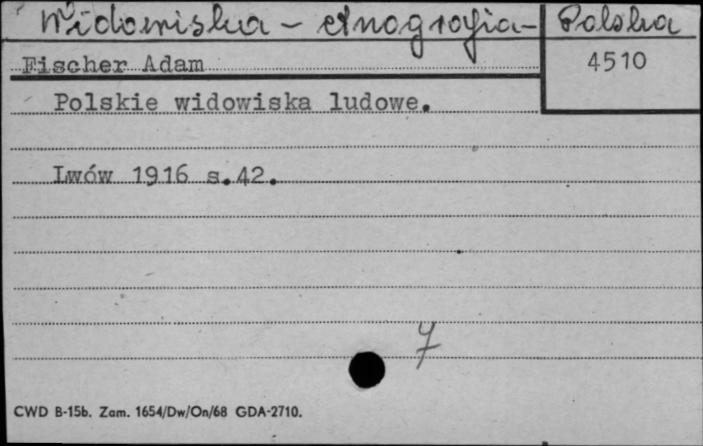 Widowiska - etnografia - Polska
Fischer Adam
4510
Polskie widowiska ludowe.
Lwów 1916 s.42.
7
CWD B-15b. Zam. 1654/Dw/On/68 GDA-2710.